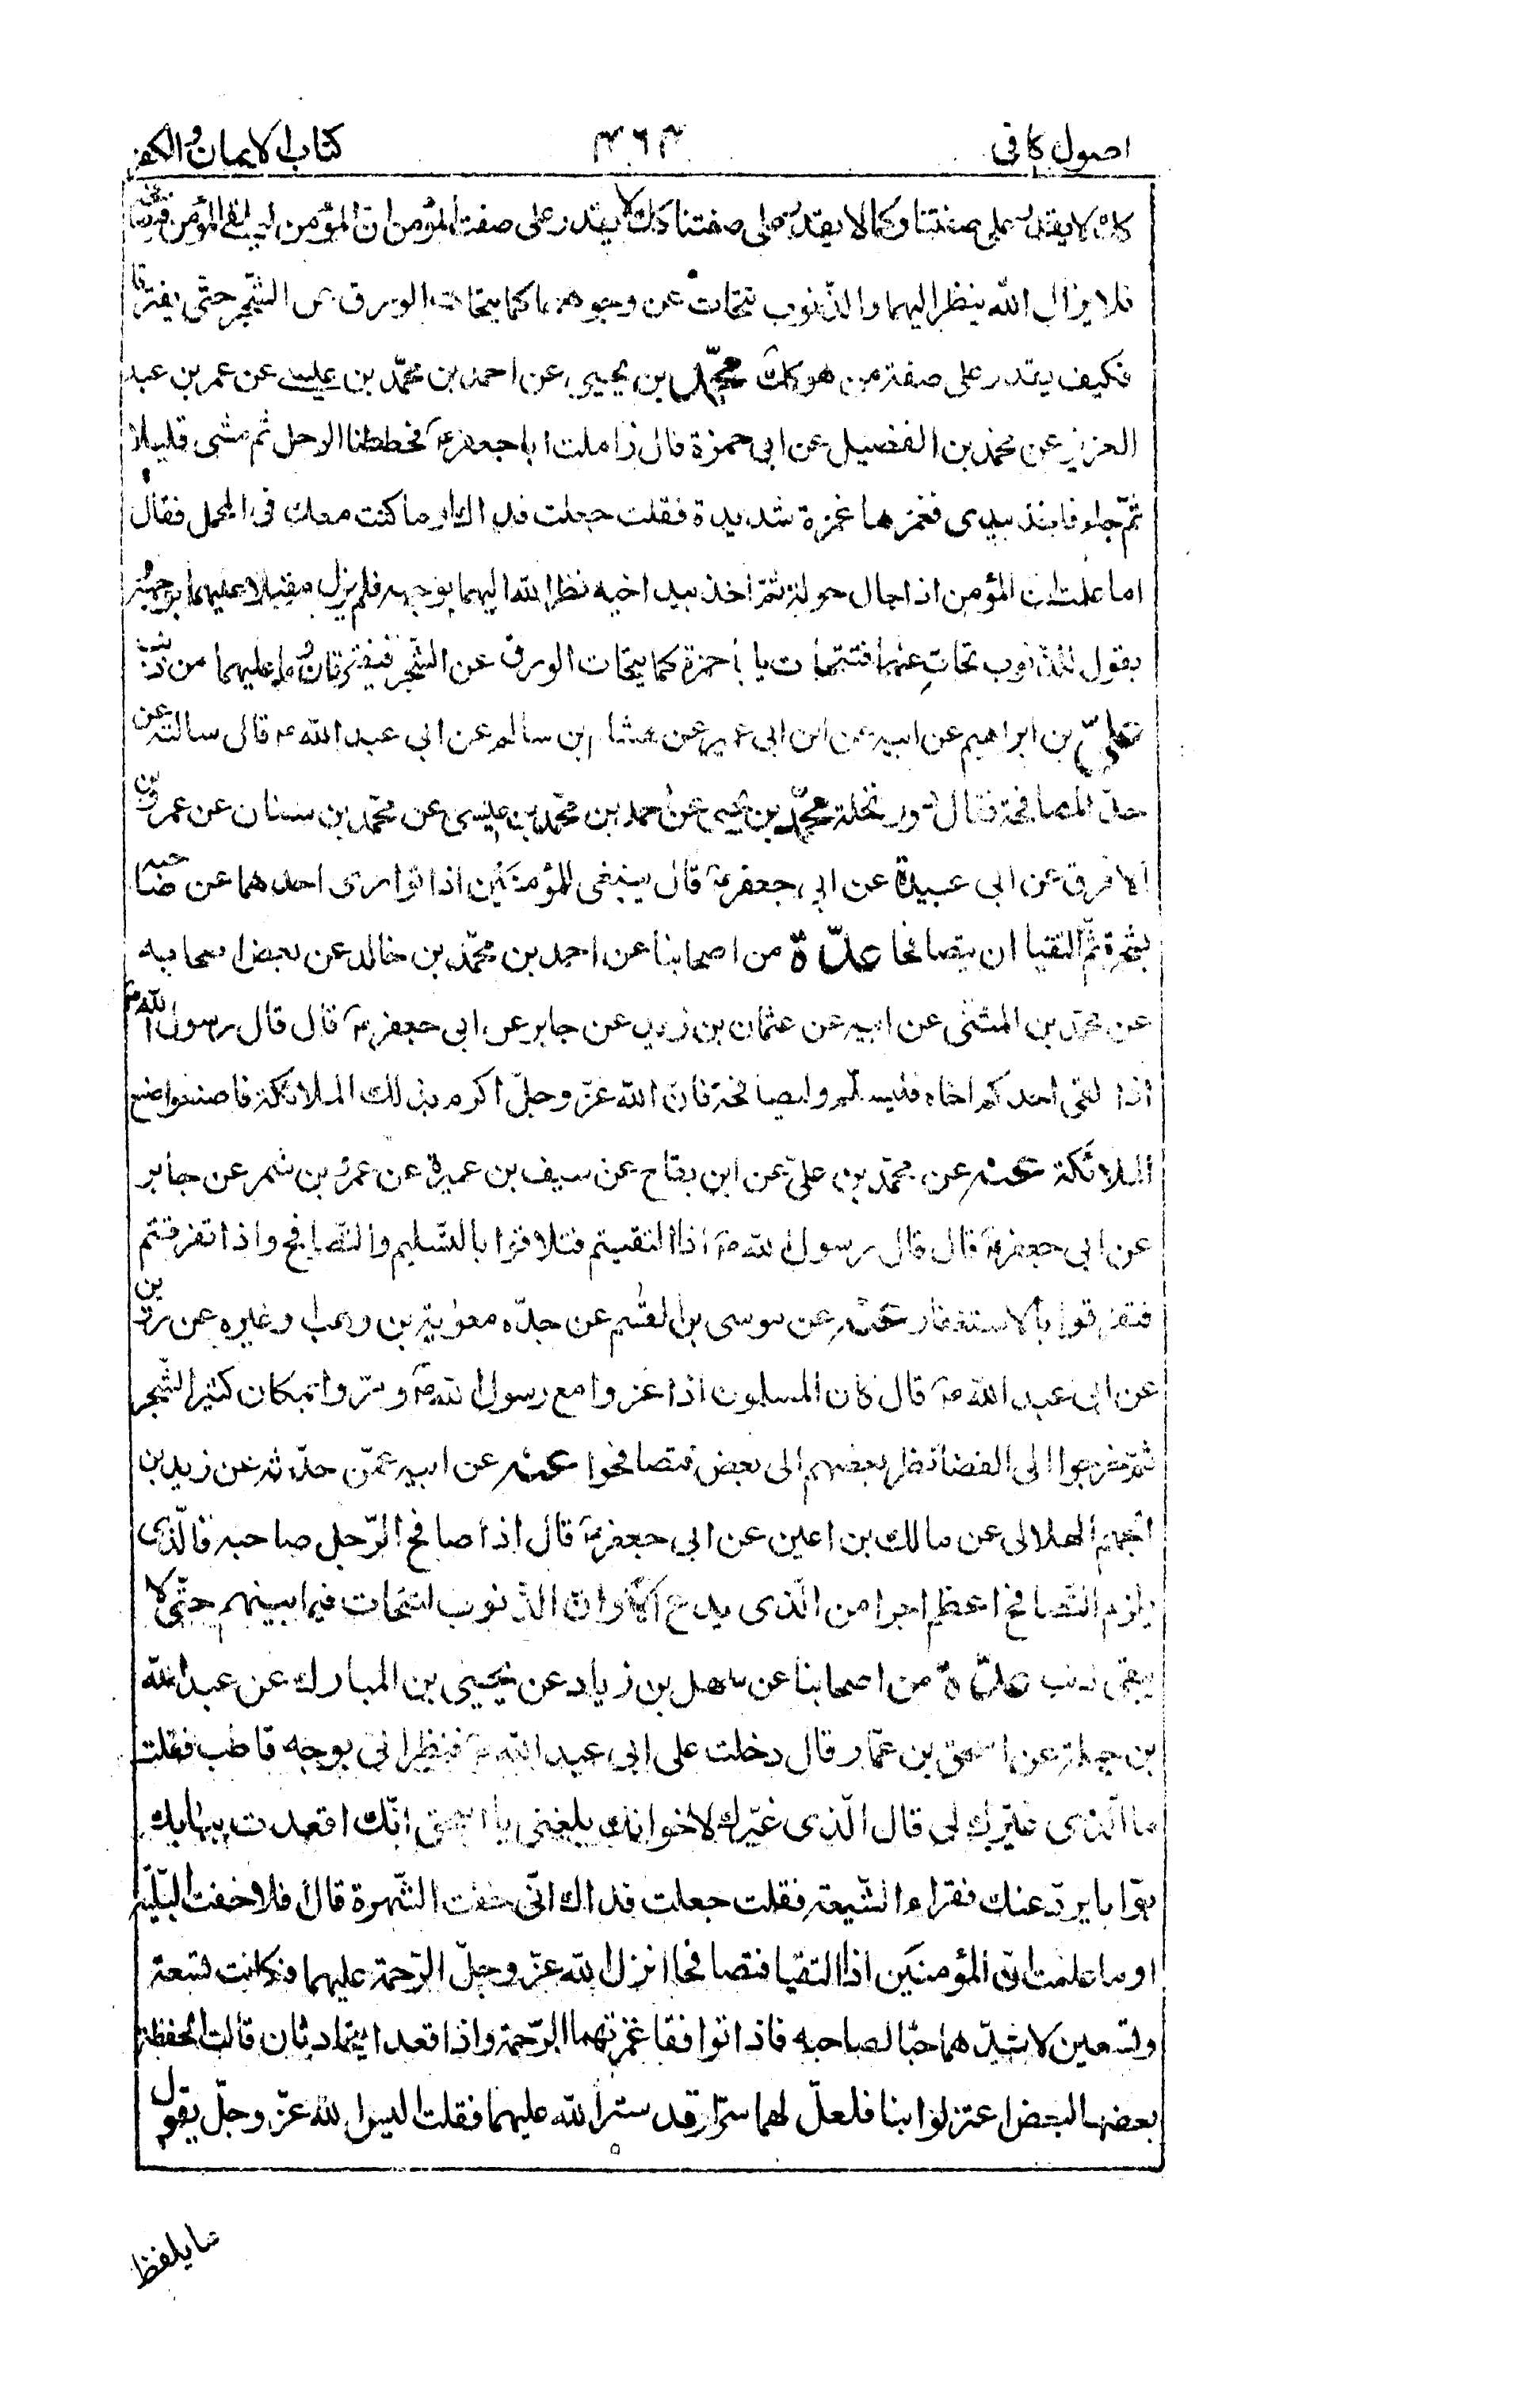 اصول كافى ٣٦٣ كتاب الايمان والكفر
كك لا يقدر على صفتنا وكما لا يقدر على صفتنا كك لا يقدر على صفة المؤمن ان المؤمن ليلقى المؤمن فيصافحه
فلا يزال الله ينظر اليهما والذّنوب تتحاتّ عن وجوههما كما يتحات الورق عن الشّجر حتّى يفترقا
فكيف يقدر على صفة من هو كك محمّد بن يحيى عن احمد بن محمّد بن عيسى عن عمر بن عبد
العزيز عن محمّد بن الفضيل عن ابى حمزة قال زاملت ابا جعفر ع فحططنا الرحل ثم مشى قليلا
ثمّ جاء فاخذ بيدى فغمزها غمزة شديدة فقلت جعلت فداك او ما كنت معك فى المحمل فقال
اما علمت ان المؤمن اذا جال جولة ثمّ اخذ بيد اخيه نظر الله اليهما بوجهه فلم يزل مقبلا عليهما بوجهه
يقول للذّنوب تحاتِ عنهما فتتحات يا با حمزة كما يتحات الورق عن الشّجر فيفترقان وما عليهما من ذنب
علىّ بن ابراهيم عن ابيه عن ابن ابى عمير عن هشام بن سالم عن ابى عبد الله ع قال سالته عن
حدّ المصافحة فقال دور نخلة محمّد بن يحيى عن احمد بن محمّد بن عيسى عن محمّد بن سنان عن عمرو بن
الافرق عن ابى عبيدة عن ابى جعفر ع قال ينبغى للمؤمنَيْن اذا توارى احدهما عن صاحبه
بشجرة ثمّ التقيا ان يتصافحا عدّة من اصحابنا عن احمد بن محمّد بن خالد عن بعض اصحابه
عن محمّد بن المثنّى عن ابيه عن عثمان بن زيد عن جابر عن ابى جعفر ع قال قال رسول الله ص
اذا لقى احدكم اخاه فليسلّم وليصافحه فانّ الله عزّ وجلّ اكرم بذلك الملائكة فاصنعوا صنع
الملائكة عنه عن محمّد بن علىّ عن ابن بقاح عن سيف بن عميرة عن عمرو بن شمر عن جابر
عن ابى جعفر ع قال قال رسول الله ص اذا التقيتم فتلاقوا بالتّسليم والتّصافح واذا تفرقتم
فتفرقوا بالاستغفار عنه عن موسى بن القسم عن جدّه معوية بن وهب او غيره عن رزين
عن ابى عبد الله ع قال كان المسلمون اذا غزوا مع رسول الله ص ومرّوا بمكان كثير الشّجر
ثمّ خرجوا الى الفضا نظر بعضهم الى بعض فتصافحوا عنه عن ابيه عمّن حدّثه عن زيد بن
الجهم الهلالى عن مالك بن اعين عن ابى جعفر ع قال اذا صافح الرّجل صاحبه فالّذى
يلزم التّصافح اعظم اجرا من الّذى يدع الا وانّ الذّنوب لتتحات فيما بينهم حتّى لا
يبقى ذنب عدّة من اصحابنا عن سهل بن زياد عن يحيى بن المبارك عن عبد الله
بن جبلة عن اسحق بن عمّار قال دخلت على ابى عبد الله ع فنظر الىّ بوجه قاطب فقلت
ما الّذى غيّرك لى قال الّذى غيّرك لاخوانك بلغنى يا اسحق انّك اقعدت ببابك
بوّابا يردّ عنك فقراء الشّيعة فقلت جعلت فداك انّى خفت الشّهرة قال افلا خفت البليّة
او ما علمت انّ المؤمنَين اذا التقيا فتصافحا انزل الله عزّ وجلّ الرّحمة عليهما فكانت تسعة
وتسعين لاشدّهما حبّا لصاحبه فاذا توافقا غمرتهما الرّحمة واذا قعدا يتحادثان قالت الحفظة
بعضها لبعض اعتزلوا بنا فلعلّ لهما سرّا وقد ستر الله عليهما فقلت اليس الله عزّ وجلّ يقول
ما يلفظ